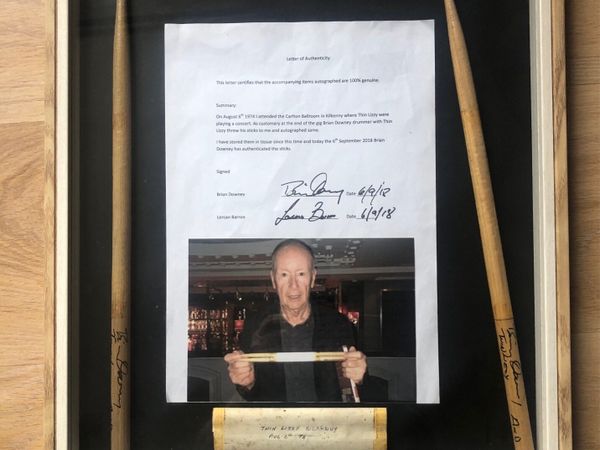 Letter of Authenticity
This letter certifies that the accompanying items autographed are 100% genuine.
Summary:
On August 6th 1974 I attended the Carlton Ballroom in Kilkenny where Thin Lizzy were
playing a concert. As customary at the end of the gig Brian Downey drummer with Thin
Lizzy threw his sticks to me and autographed same.
I have stored them in tissue since this time and today the 6th September 2018 Brian
Downey has authenticated the sticks.
Signed
Brian Downey Date 6/9/18
Date 6/9/18
THIN LIZZY KILKENNY